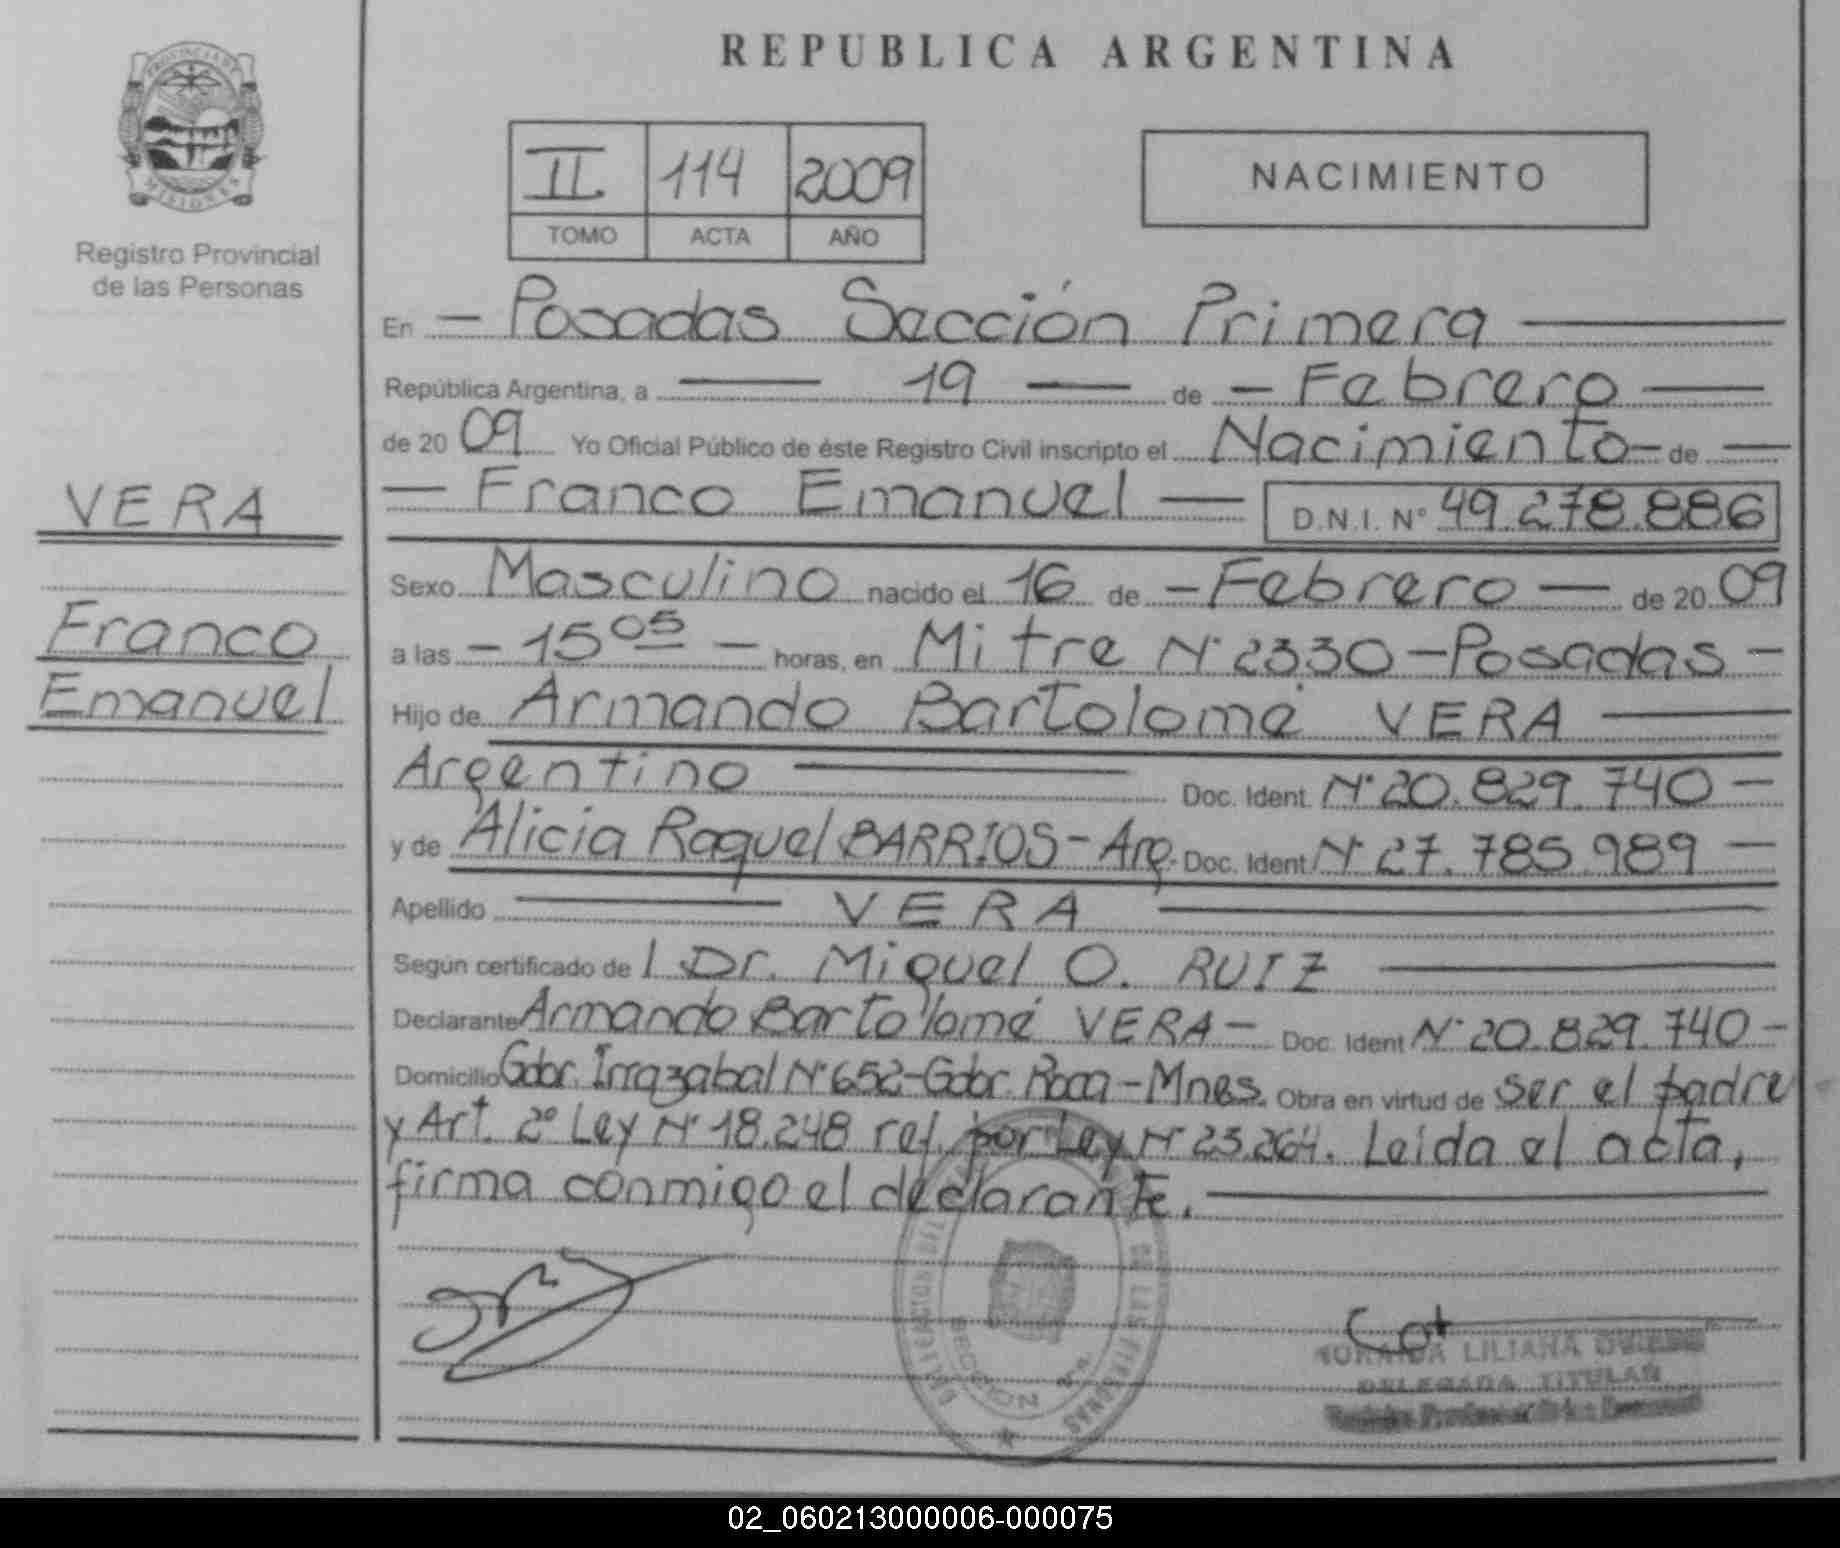 REPUBLICA ARGENTINA
PROVINCIA DE MISIONES
Registro Provincial
de las Personas
II 114 2009
TOMO ACTA AÑO
NACIMIENTO
En — Posadas Sección Primera —
República Argentina, a — 19 — de — Febrero —
de 20 09 Yo Oficial Público de éste Registro Civil inscripto el Nacimiento — de —
VERA
— Franco Emanuel — D.N.I. N° 49.278.886
Sexo Masculino nacido el 16 de — Febrero — de 20 09
Franco
a las — 15 05 — horas, en Mitre N° 2330 — Posadas —
Emanuel
Hijo de Armando Bartolomé VERA —
Argentino — Doc. Ident. N° 20.829.740 —
y de Alicia Raquel BARRIOS - Arg. Doc. Ident. N° 27.785.989 —
Apellido — VERA —
Según certificado de l Dr. Miguel O. RUIZ —
Declarante Armando Bartolomé VERA — Doc. Ident N° 20.829.740 —
Domicilio Gdor. Irrazabal N° 652 - Gdor. Roca - Mnes. Obra en virtud de ser el padre
y Art. 2° Ley N° 18.248 ref. por Ley N° 23.264. Leida el acta,
firma conmigo el declarante. —
DELEGACION DEL DE LAS PERSONAS
SECCION
LILIANA
DELEGADA TITULAR
02_060213000006-000075